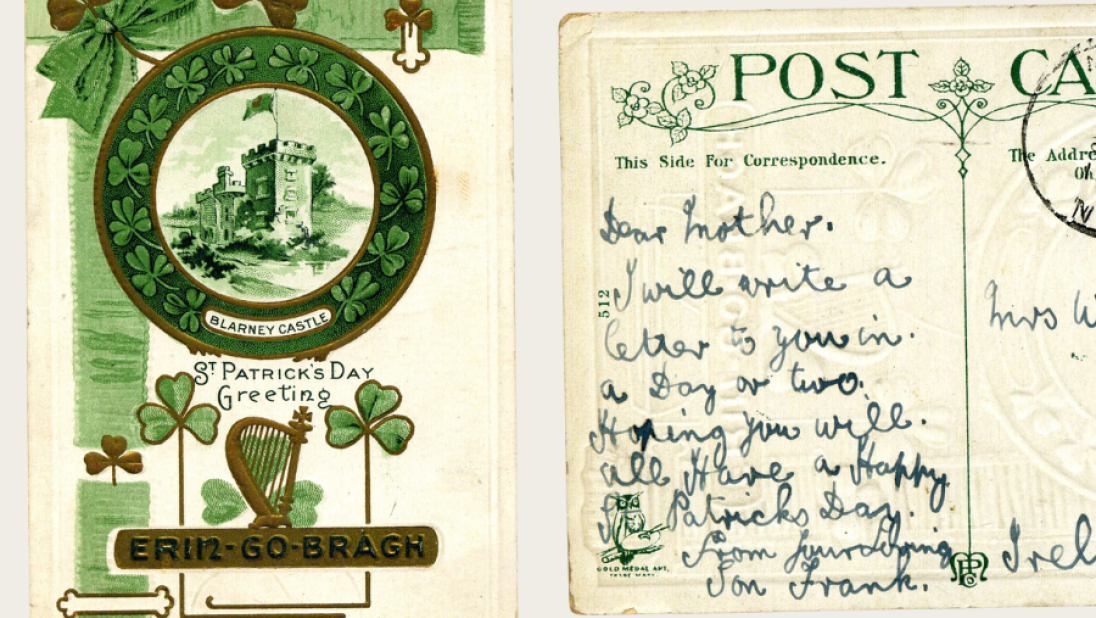 BLARNEY CASTLE
ST PATRICK'S DAY
Greeting
ERIN-GO-BRAGH
POST CA
This Side For Correspondence.
The Addre
On
Dear Mother.
I will write a
letter to you in.
a Day or two.
Hoping you will.
all Have a Happy
St Patricks Day.
From your loving
Son Frank.
512
GOLD MEDAL ART.
TRADE MARK.
Mrs W
Irel